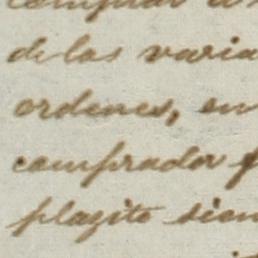 comprar
de las varia
ordenes, en
comprador
plazito sien